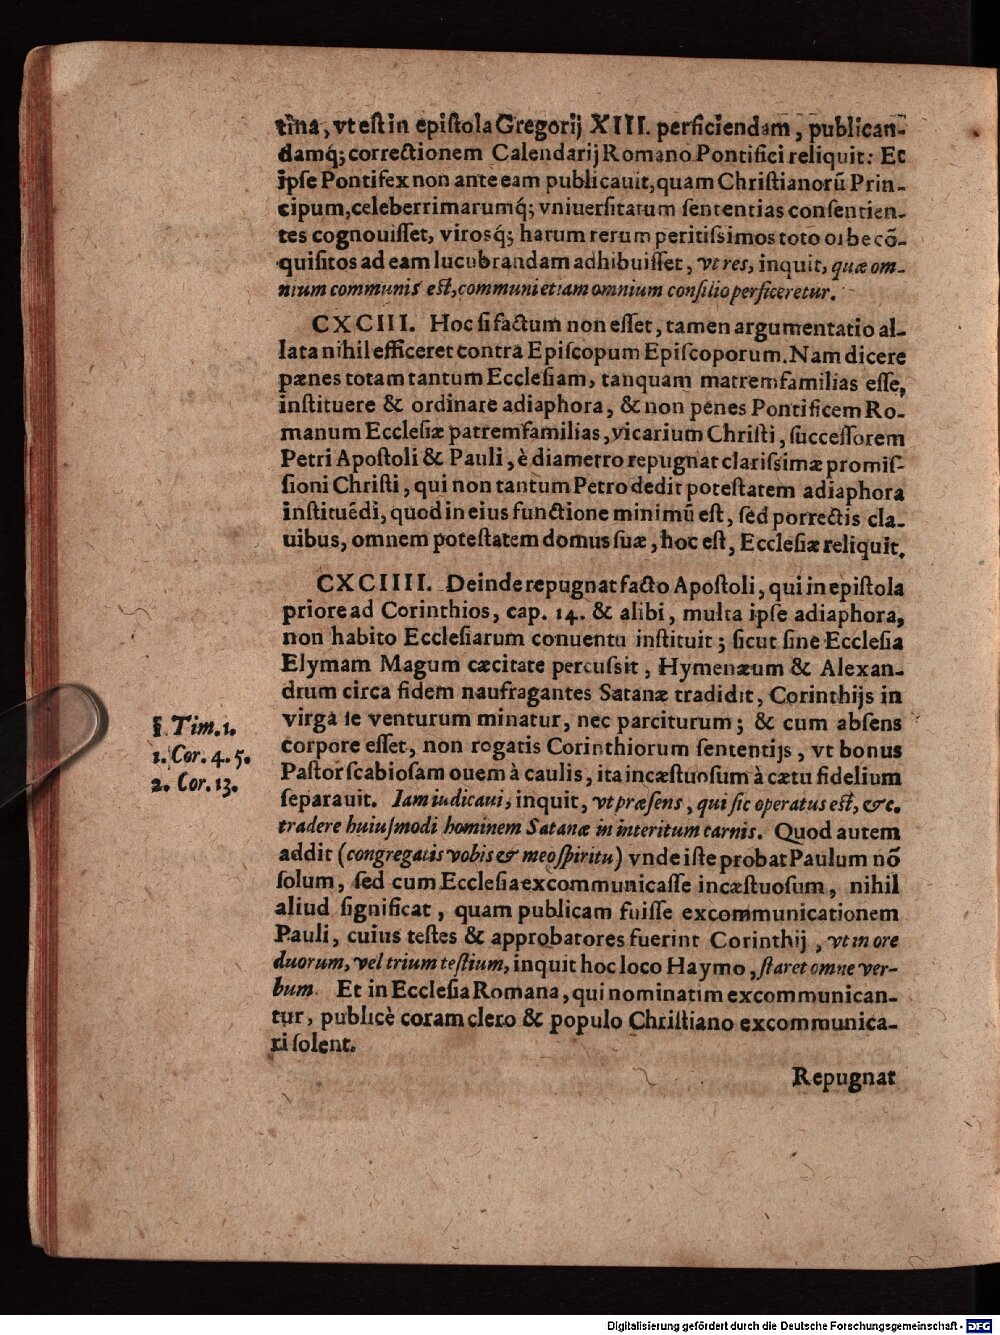 tina, vt est in epistola Gregorij XIII. perficiendam, publican-
damq́; correctionem Calendarij Romano Pontifici reliquit: Et
ipse Pontifex non ante eam publicauit, quam Christianorū Prin-
cipum, celeberrimarumq́; vniuersitatum sententias consentien-
tes cognouisset, virosq́; harum rerum peritissimos toto orbe cō-
quisitos ad eam lucubrandam adhibuisset, vt res, inquit, quæ om-
nium communis est, communi etiam omnium consilio perficeretur.
CXCIII. Hoc si factum non esset, tamen argumentatio al-
lata nihil efficeret contra Episcopum Episcoporum. Nam dicere
pænes totam tantum Ecclesiam, tanquam matremfamilias esse,
instituere & ordinare adiaphora, & non penes Pontificem Ro-
manum Ecclesiæ patremfamilias, vicarium Christi, successorem
Petri Apostoli & Pauli, è diametro repugnat clarissimæ promis-
sioni Christi, qui non tantum Petro dedit potestatem adiaphora
instituēdi, quod in eius functione minimū est, sed porrectis cla-
uibus, omnem potestatem domus suæ, hoc est, Ecclesiæ reliquit.
CXCIIII. Deinde repugnat facto Apostoli, qui in epistola
priore ad Corinthios, cap. 14. & alibi, multa ipse adiaphora,
non habito Ecclesiarum conuentu instituit; sicut sine Ecclesia
Elymam Magum cæcitate percussit, Hymenæum & Alexan-
drum circa fidem naufragantes Satanæ tradidit, Corinthijs in
virga se venturum minatur, nec parciturum; & cum absens
corpore esset, non rogatis Corinthiorum sententijs, vt bonus
Pastor scabiosam ouem à caulis, ita incæstuosum à cætu fidelium
separauit. Iam iudicaui, inquit, vt præsens, qui sic operatus est, &c.
tradere huiusmodi hominem Satanæ in interitum carnis. Quod autem
addit (congregatis vobis & meo spiritu) vnde iste probat Paulum nō
solum, sed cum Ecclesia excommunicasse incæstuosum, nihil
aliud significat, quam publicam fuisse excommunicationem
Pauli, cuius testes & approbatores fuerint Corinthij, vt in ore
duorum, vel trium testium, inquit hoc loco Haymo, staret omne ver-
bum. Et in Ecclesia Romana, qui nominatim excommunican-
tur, publicè coram clero & populo Christiano excommunica-
ri solent.
Repugnat
1. Tim. 1.
1. Cor. 4. 5.
2. Cor. 13.
Digitalisierung gefördert durch die Deutsche Forschungsgemeinschaft - DFG